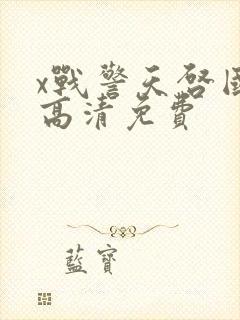 x戰警天啓國
高清免費
藍寶